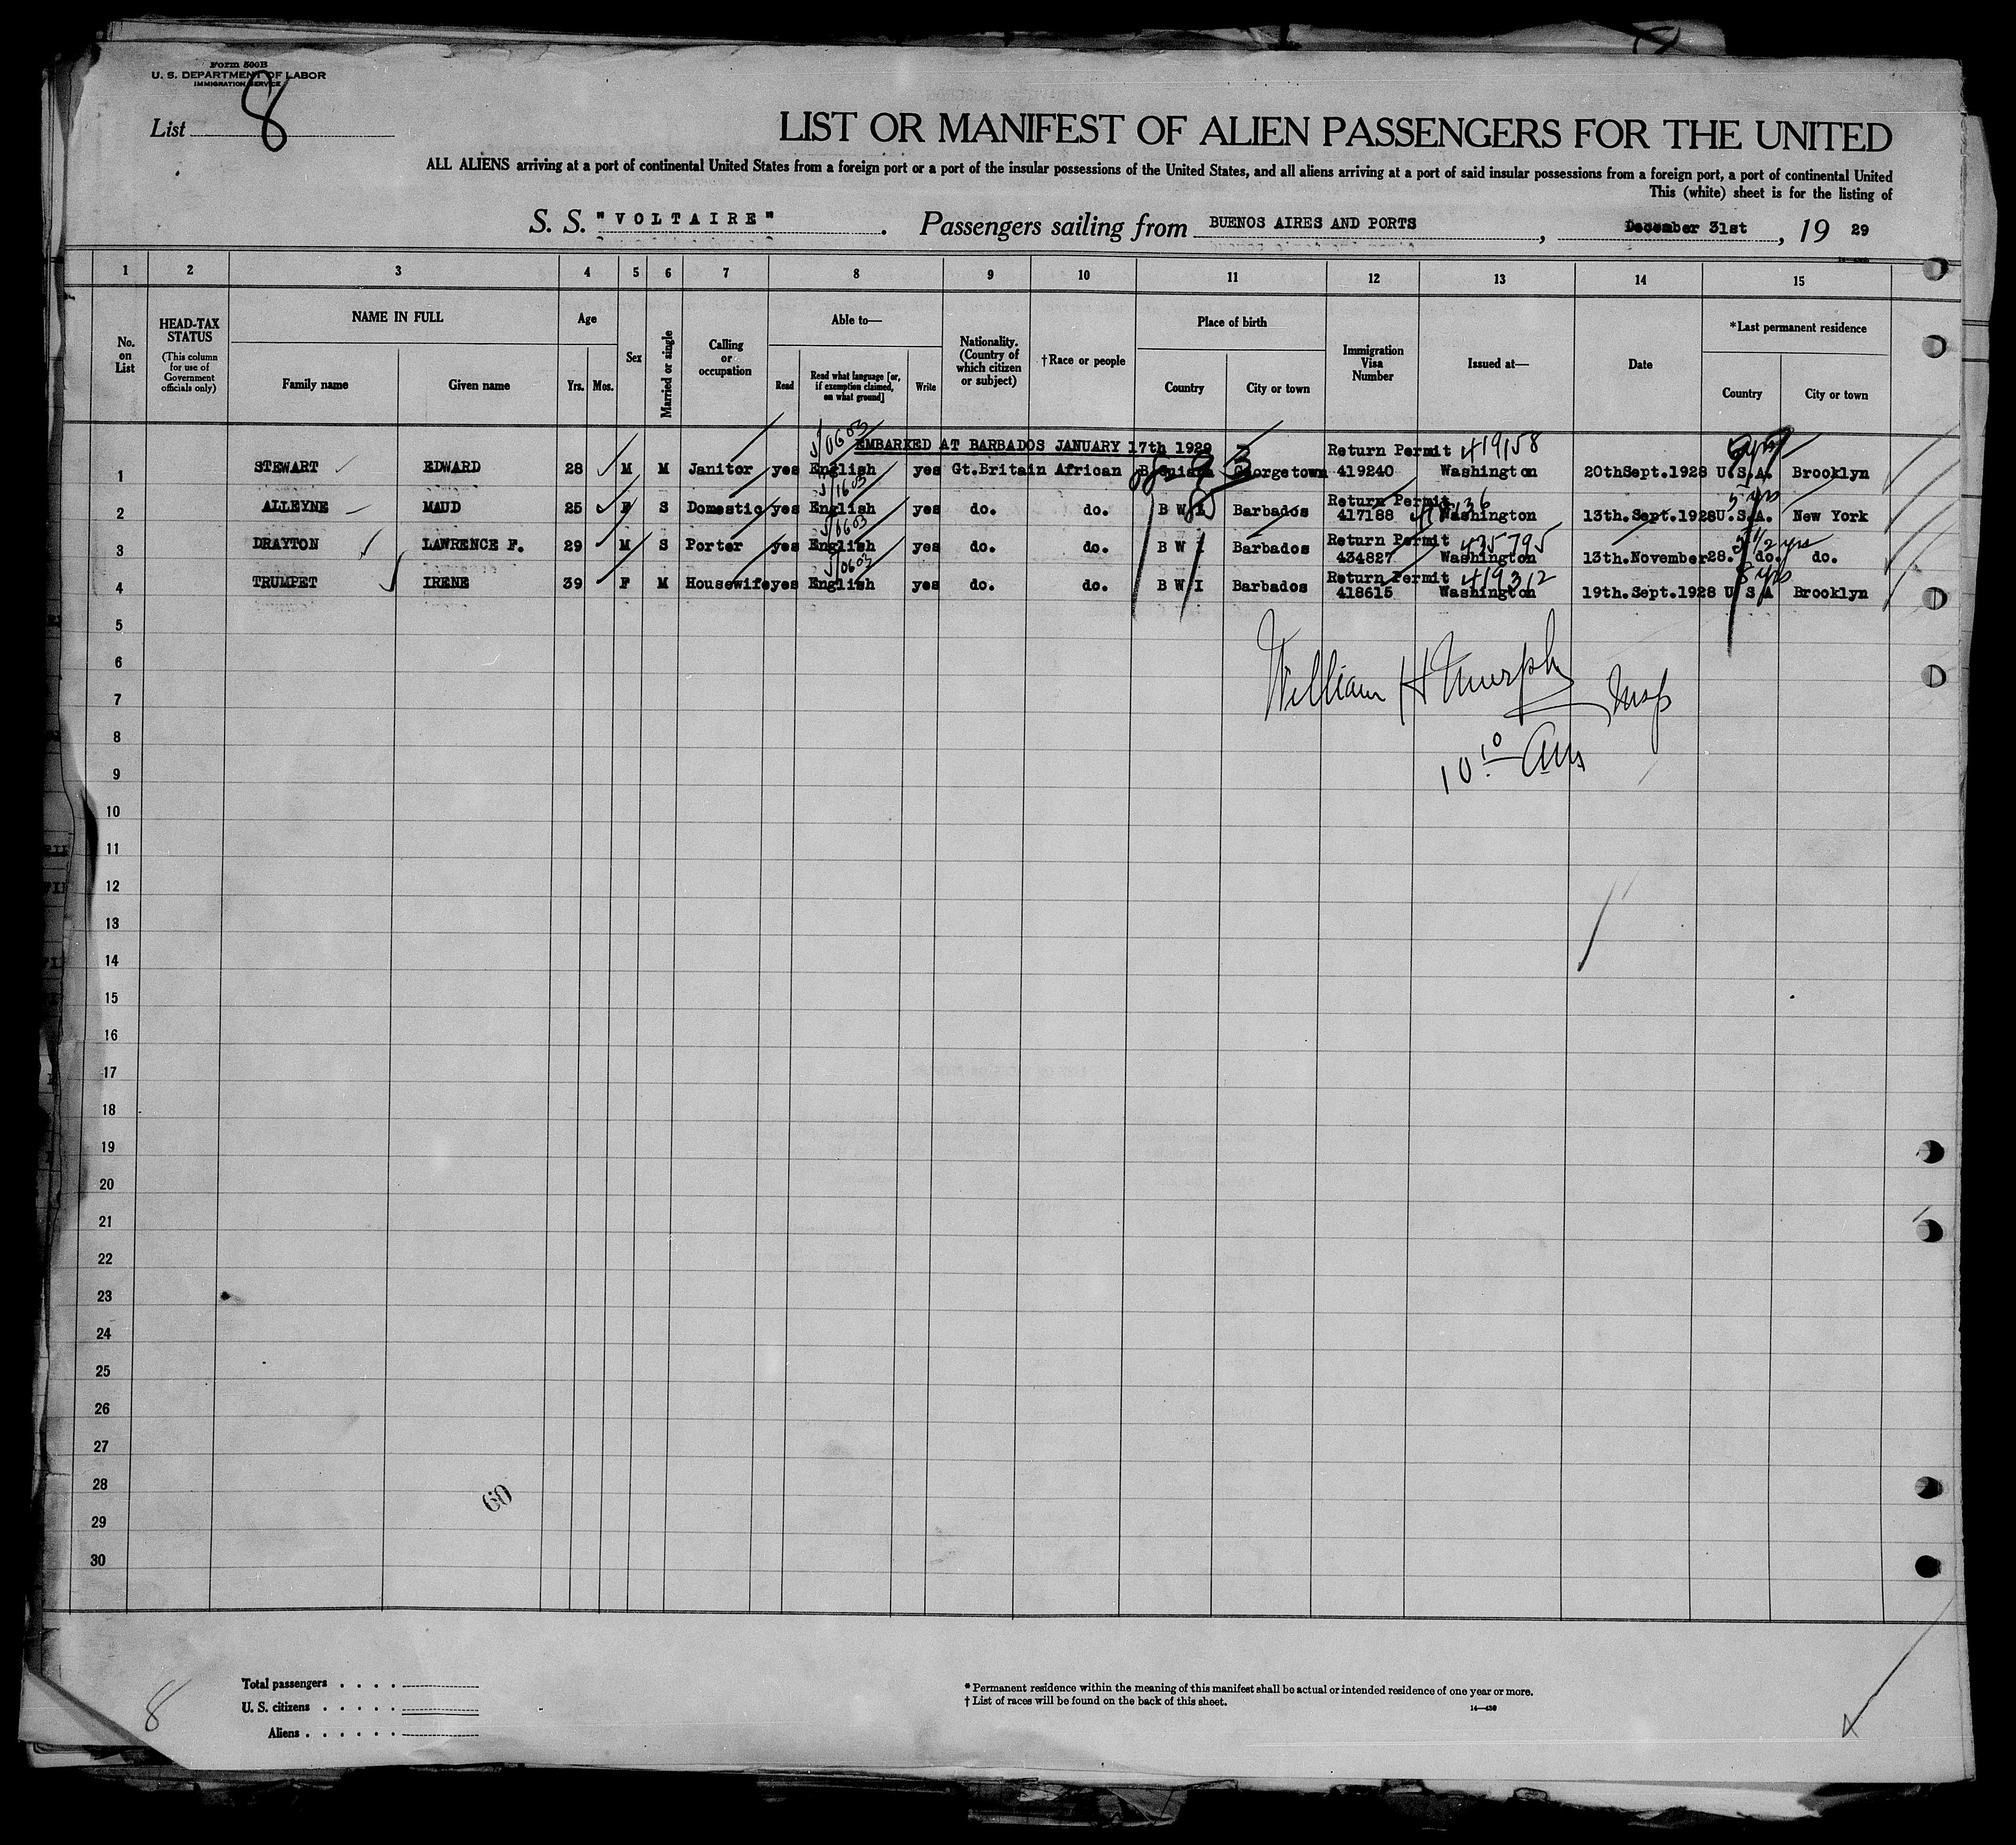 Form 500B
U. S. DEPARTMENT OF LABOR
IMMIGRATION SERVICE
List 8
LIST OR MANIFEST OF ALIEN PASSENGERS FOR THE UNITED
ALL ALIENS arriving at a port of continental United States from a foreign port or a port of the insular possessions of the United States, and all aliens arriving at a port of said insular possessions from a foreign port, a port of continental United
This (white) sheet is for the listing of
S. S. "VOLTAIRE" . Passengers sailing from BUENOS AIRES AND PORTS , December 31st , 19 29
1 2 3 4 5 6 7 8 9 10 11 12 13 14 15
No. on List
HEAD-TAX STATUS
(This column for use of Government officials only)
NAME IN FULL
Family name
Given name
Age
Yrs. Mos.
Sex
Married or single
Calling or occupation
Able to—
Read
Read what language [or, if exemption claimed, on what ground]
Write
Nationality. (Country of which citizen or subject)
†Race or people
Place of birth
Country
City or town
Immigration Visa Number
Issued at—
Date
*Last permanent residence
Country
City or town
EMBARKED AT BARBADOS JANUARY 17th 1929
Return Permit 419158
1 STEWART EDWARD 28 M M Janitor yes English yes Gt.Britain African B.Guiana Georgetown 419240 Washington 20thSept.1928 U.S.A. Brooklyn
Return Permit 5 yrs
2 ALLEYNE MAUD 25 F S Domestic yes English yes do. do. B W I Barbados 417188 Washington 13th.Sept.1928 U.S.A. New York
Return Permit 435795
3 DRAYTON LAWRENCE F. 29 M S Porter yes English yes do. do. B W I Barbados 434827 Washington 13th.November28. do. do.
Return Permit 419312 8 yrs
4 TRUMPET IRENE 39 F M Housewife yes English yes do. do. B W I Barbados 418615 Washington 19th.Sept.1928 U S A Brooklyn
5
6
William H Murphy Insp
7
8
10 10 AM
9
10
11
12
13
14
15
16
17
18
19
20
21
22
23
24
25
26
27
28
60
29
30
Total passengers . . . .
U. S. citizens . . . . .
Aliens . . . . . .
8
* Permanent residence within the meaning of this manifest shall be actual or intended residence of one year or more.
† List of races will be found on the back of this sheet.
14—430